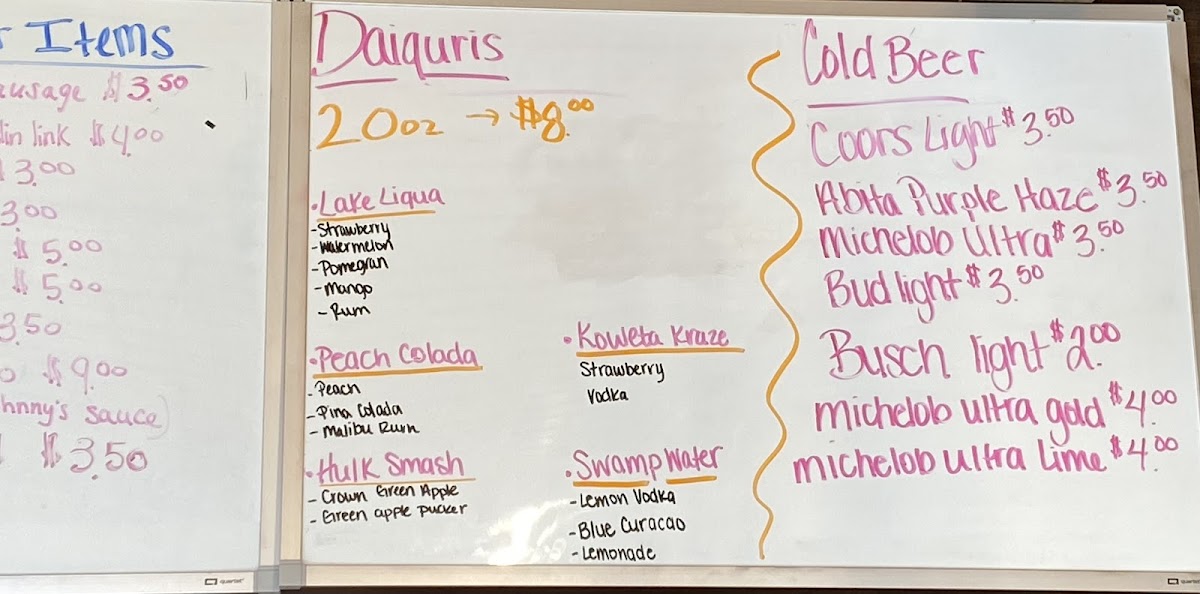 Items
$3.50
link $4.00
3.00
3.00
$5.00
$5.00
3.50
$9.00
sauce)
$3.50
Daiquris
20oz → $8.00
·Lake Liqua
-Strawberry
-Watermelon
-Pomegran
-Mango
-Rum
·Peach Colada
-Peach
-Pina Colada
-Malibu Rum
·Hulk Smash
-Crown Green Apple
-Green apple pucker
·Koweta Kraze
Strawberry
Vodka
·Swamp Water
-Lemon Vodka
-Blue Curacao
-Lemonade
Cold Beer
Coors Light $3.50
Abita Purple Haze $3.50
Michelob Ultra $3.50
Bud light $3.50
Busch light $2.00
michelob ultra gold $4.00
michelob ultra Lime $4.00
quartet